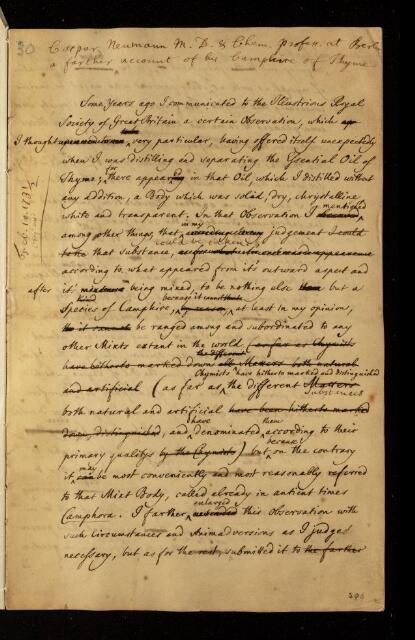 30 Caspar Neumann M. D. & Chem. profess. at Berlin
a farther account of his Camphire of Thyme
Some Years ago I communicated to the Illustrious Royal
Society of Great Britain a certain Observation, which
I thought very particular, having offered itself unexpectedly
when I was distilling and separating the Essential Oil of
Thyme; there appear in that Oil, which I distilled without
any addition, a Body which was solid, dry, chrystalline
white and transparent. In that Observation I mentioned
among other things, that in my judgement I could
that substance,
according to what appeared from it's outward aspect and
after it's being mixed, to be nothing else but a
kind
Species of Camphire, because it at least in my opinion,
be ranged among and subordinated to any
other Mixts extant in the world (as far as Chymists
have hitherto marked down the different Matters both natural
Chymists have hitherto marked and distinguished
and artificial (as far as the different Matters
Substances
both natural and artificial have been hitherto marked
have them
down, distinguished, and denominated according to their
because
primary qualitys by the Chymists) but on the contrary
it may be most conveniently and most reasonably referred
to that Mixt Body, called already in antient times
Camphora. I farther enlarged this Observation with
such Circumstances and Animadversions as I judged
necessary, but as for the rest, submitted it to the farther